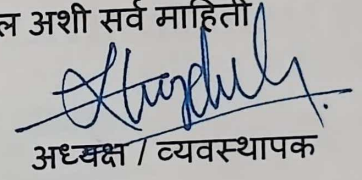 ल अशी सर्व माहिती
अध्यक्ष / व्यवस्थापक